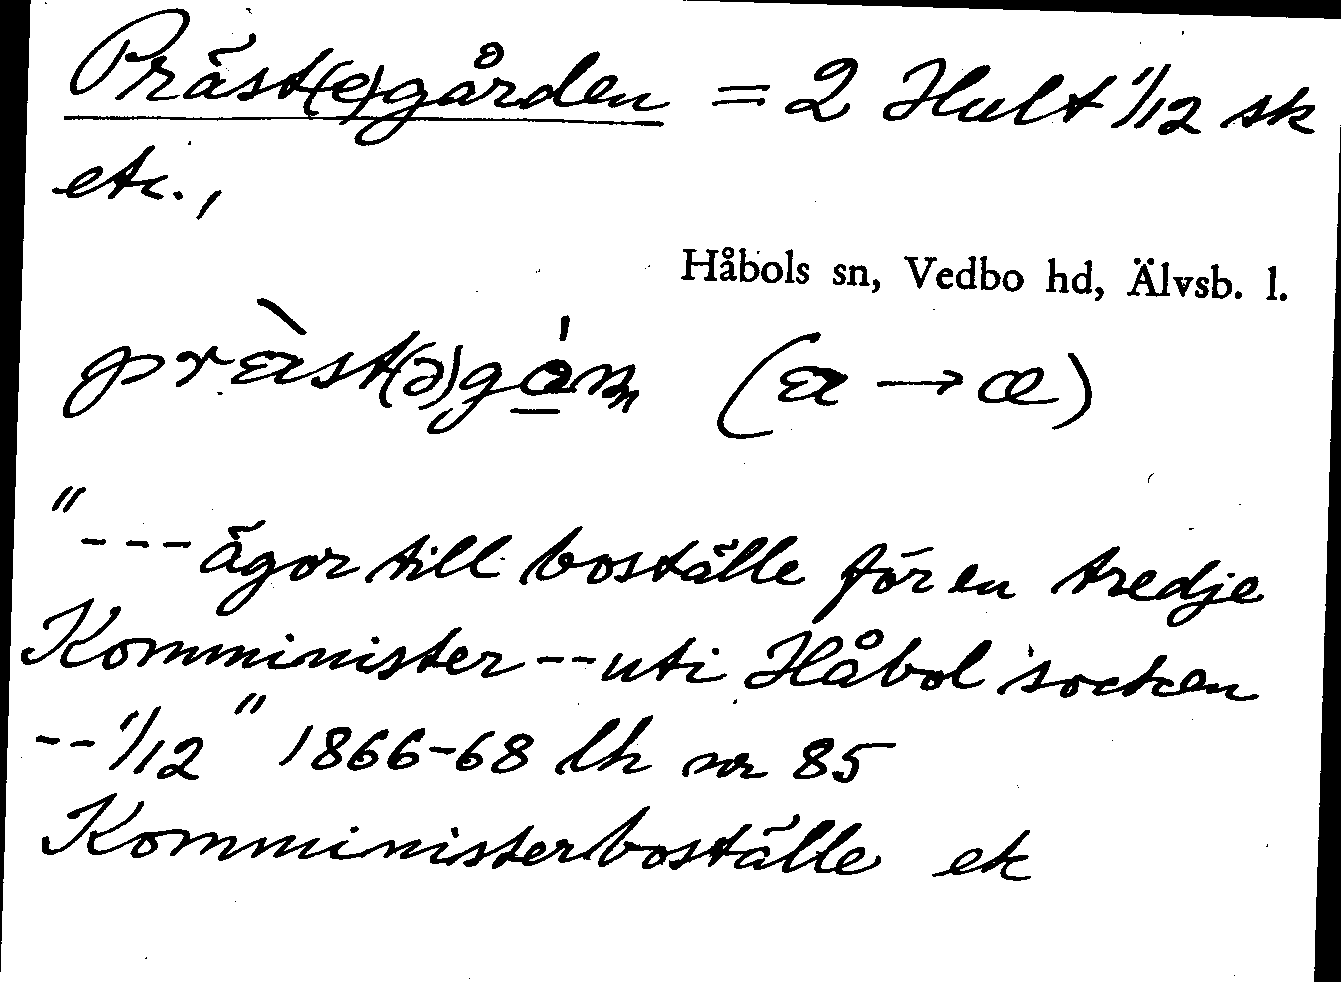 Präst(e)gården = 2 Hult 1/12 sk
etc.,
Håbols sn, Vedbo hd, Älvsb. l.
(æ → œ)
"--- ägor till boställe för en tredje
Komminister -- uti Håbol socken
-- 1/12" 1866-68 lh nr 85
Komministerboställe ek